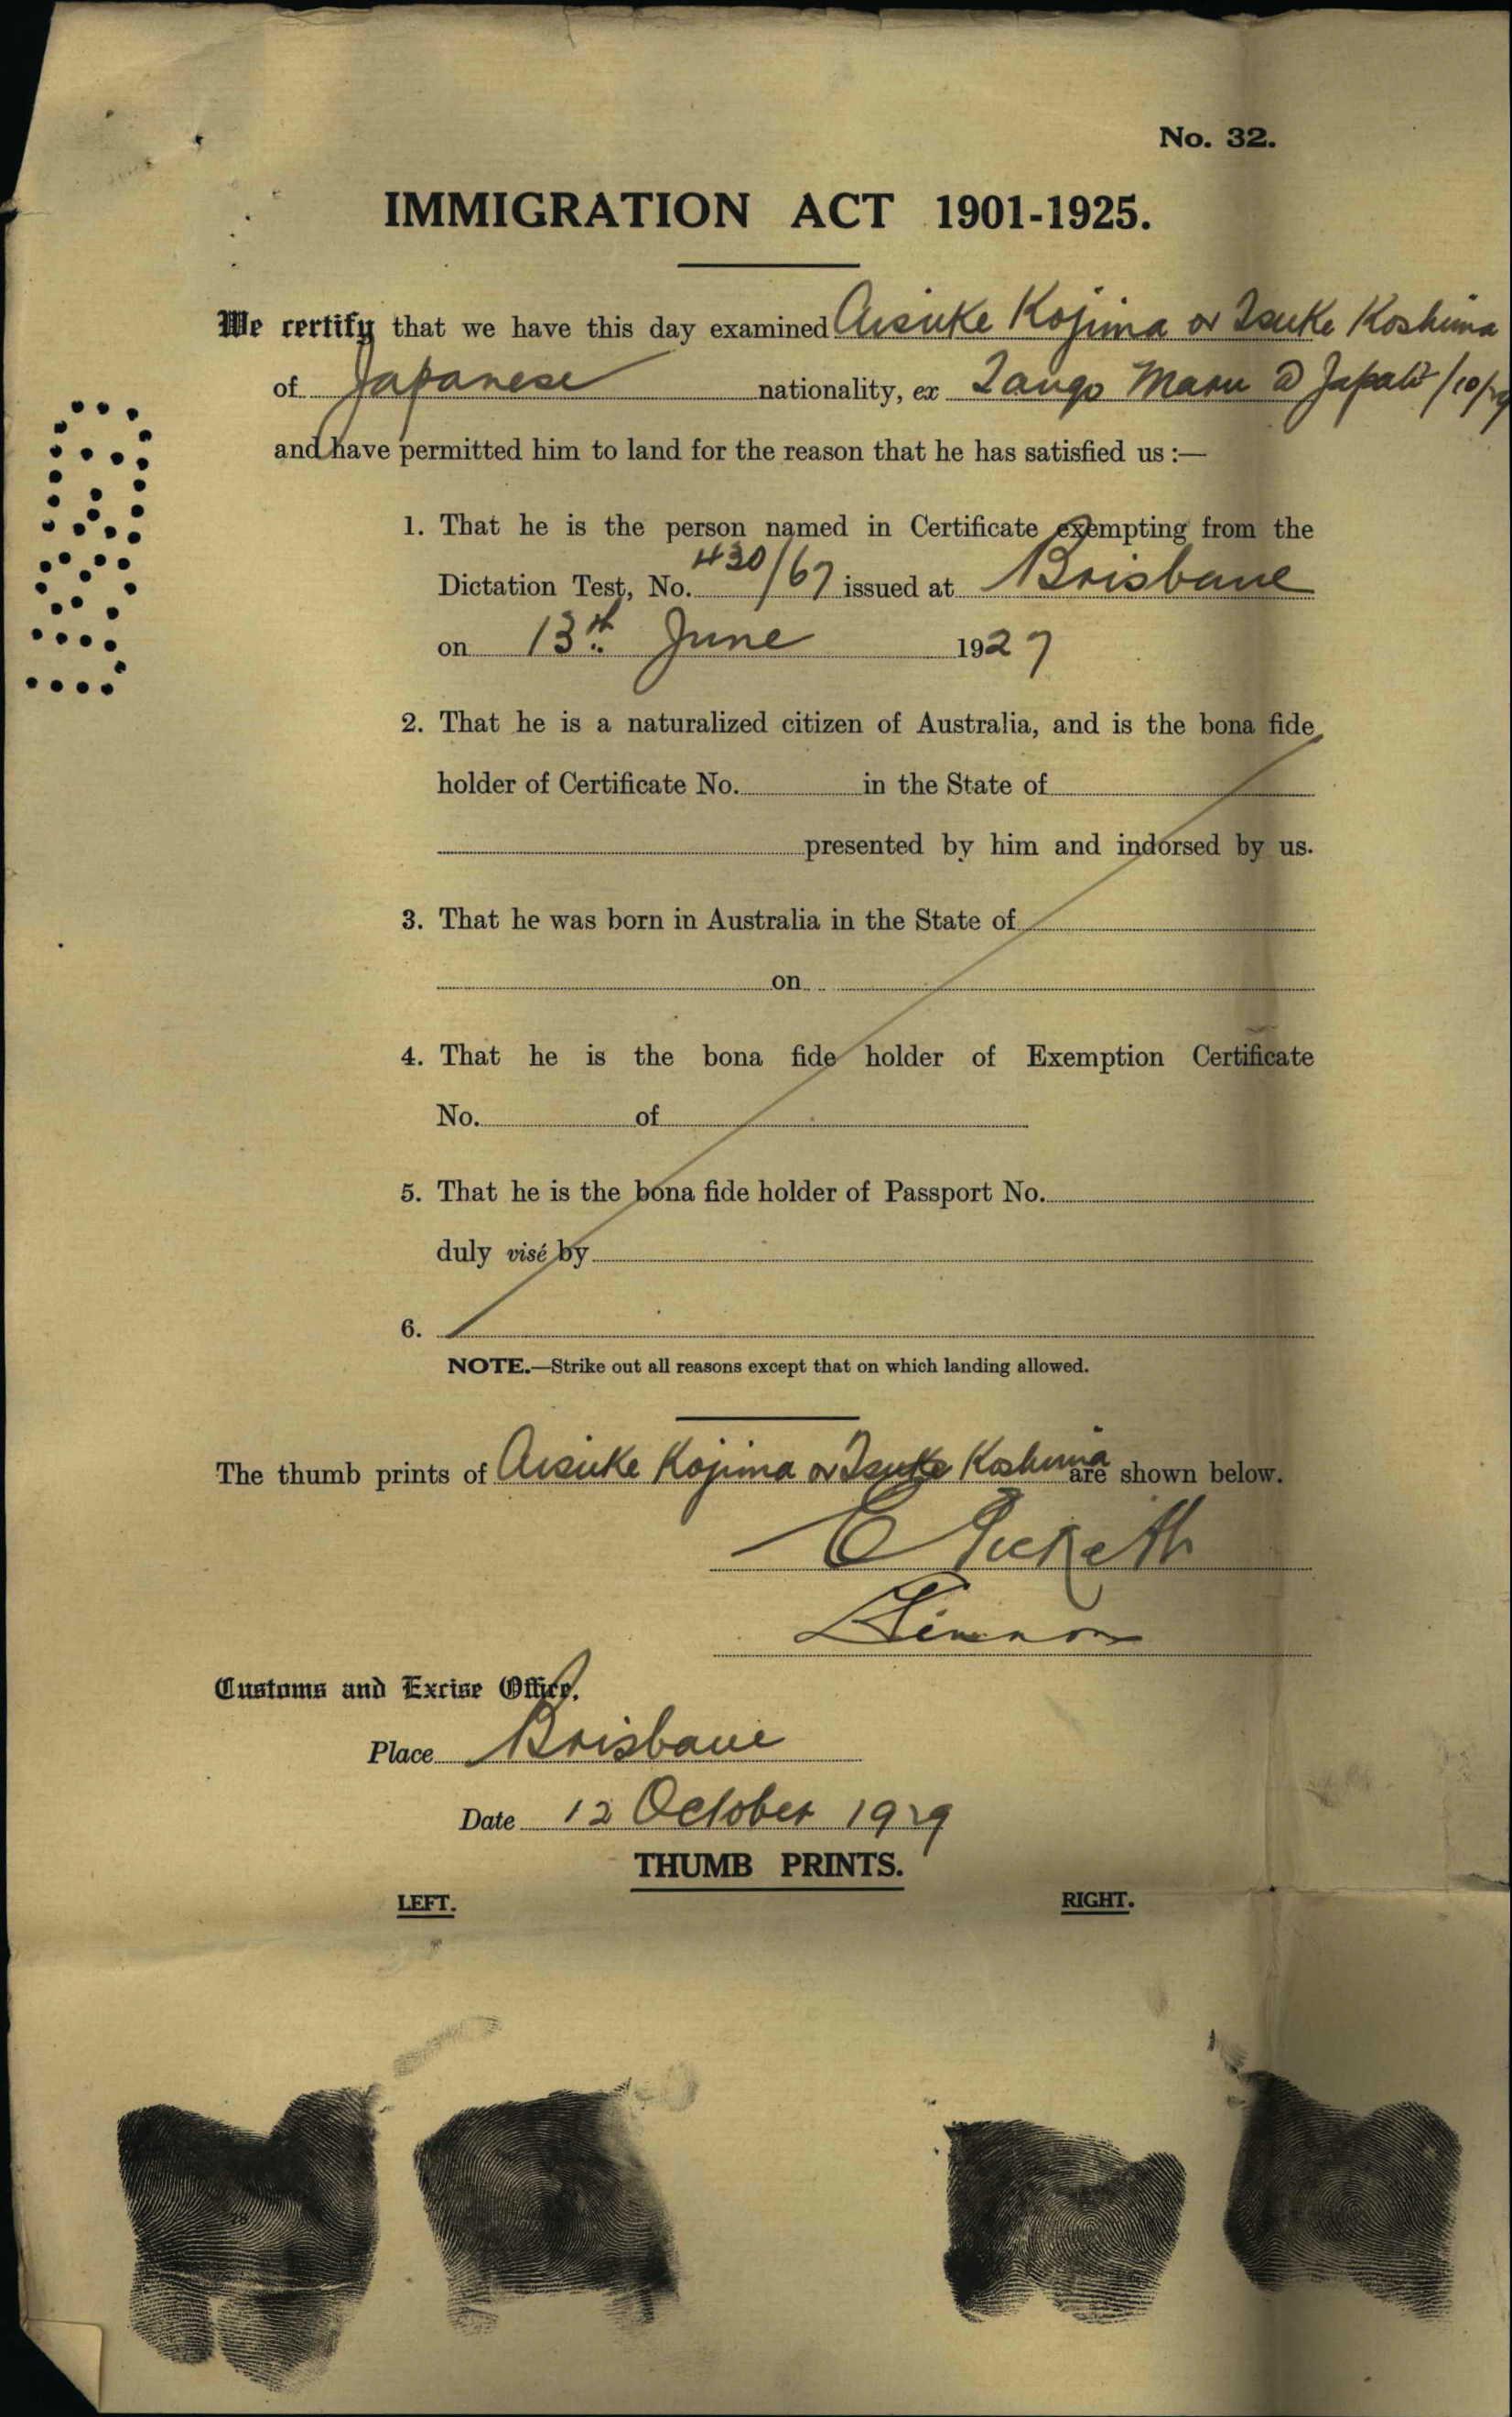 No. 32.
IMMIGRATION ACT 1901-1925.
We certify that we have this day examined Aisuke Kojima or Isuke Koshima
of Japanese nationality, ex Tango Maru @ Japan /10/29
and have permitted him to land for the reason that he has satisfied us :—
1. That he is the person named in Certificate exempting from the
Dictation Test, No. 430/67 issued at Brisbane
on 13th June 1927
2. That he is a naturalized citizen of Australia, and is the bona fide
holder of Certificate No. in the State of
presented by him and indorsed by us.
3. That he was born in Australia in the State of
on
4. That he is the bona fide holder of Exemption Certificate
No. of
5. That he is the bona fide holder of Passport No.
duly visé by
6.
NOTE.—Strike out all reasons except that on which landing allowed.
The thumb prints of Aisuke Kojima or Isuke Koshima are shown below.
Customs and Excise Office,
Place Brisbane
Date 12 October 1929
THUMB PRINTS.
LEFT. RIGHT.